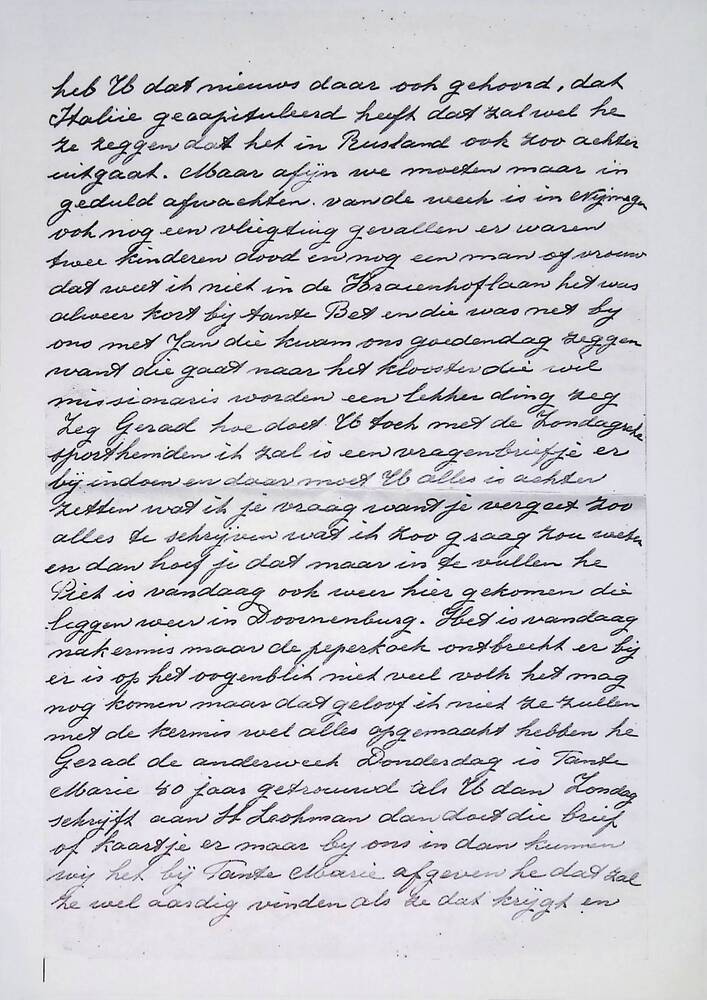 heb U dat nieuws daar ook gehoord, dat
Italiie gecapituleerd heeft dat zal wel he
ze zeggen dat het in Rusland ook zoo achter
uitgaat. Maar afijn we moeten maar in
geduld afwachten. van de week is in Nijmegen
ook nog een vliegting gevallen er waren
twee kinderen dood en nog een man of vrouw
dat weet ik niet in de Kraaienhoflaan het was
alweer kort bij tante Bet en die was net bij
ons met Jan die kwam ons goedendag zeggen
want die gaat naar het klooster die wil
missionaris worden een lekker ding zeg
Zeg Gerad hoe doet U toch met de Zondagsche
sporthemden ik zal is een vragenbriefje er
bij indoen en daar moet U alles is achter
zetten wat ik je vraag want je vergeet zoo
alles te schrijven wat ik zoo graag zou weten
en dan hoef je dat maar in te vullen he
Piet is vandaag ook weer hier gekomen die
liggen weer in Doornenburg. Het is vandaag
nakermis maar de peperkoek ontbrecht er bij
er is op het oogenblik niet veel volk het mag
nog komen maar dat geloof ik niet ze zullen
met de kermis wel alles opgemaakt hebben he
Gerad de anderweek Donderdag is Tante
Marie 30 jaar getrouwd als U dan Zondag
schrijft aan H Loohman dan doet die brief
of kaartje er maar bij ons in dan kunnen
wij het bij Tante Marie afgeven he dat zal
ze wel aardig vinden als ze dat krijgt en